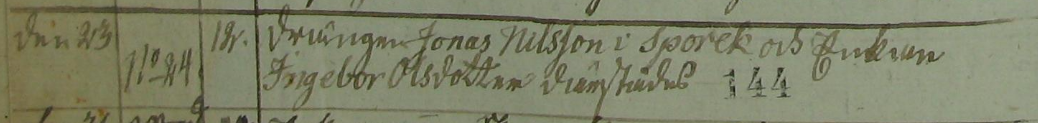 den 23 No 24 18. Drängen Jonas Nilsson i Sporek och Enkian
Ingebor Olsdotter dierstädes 144